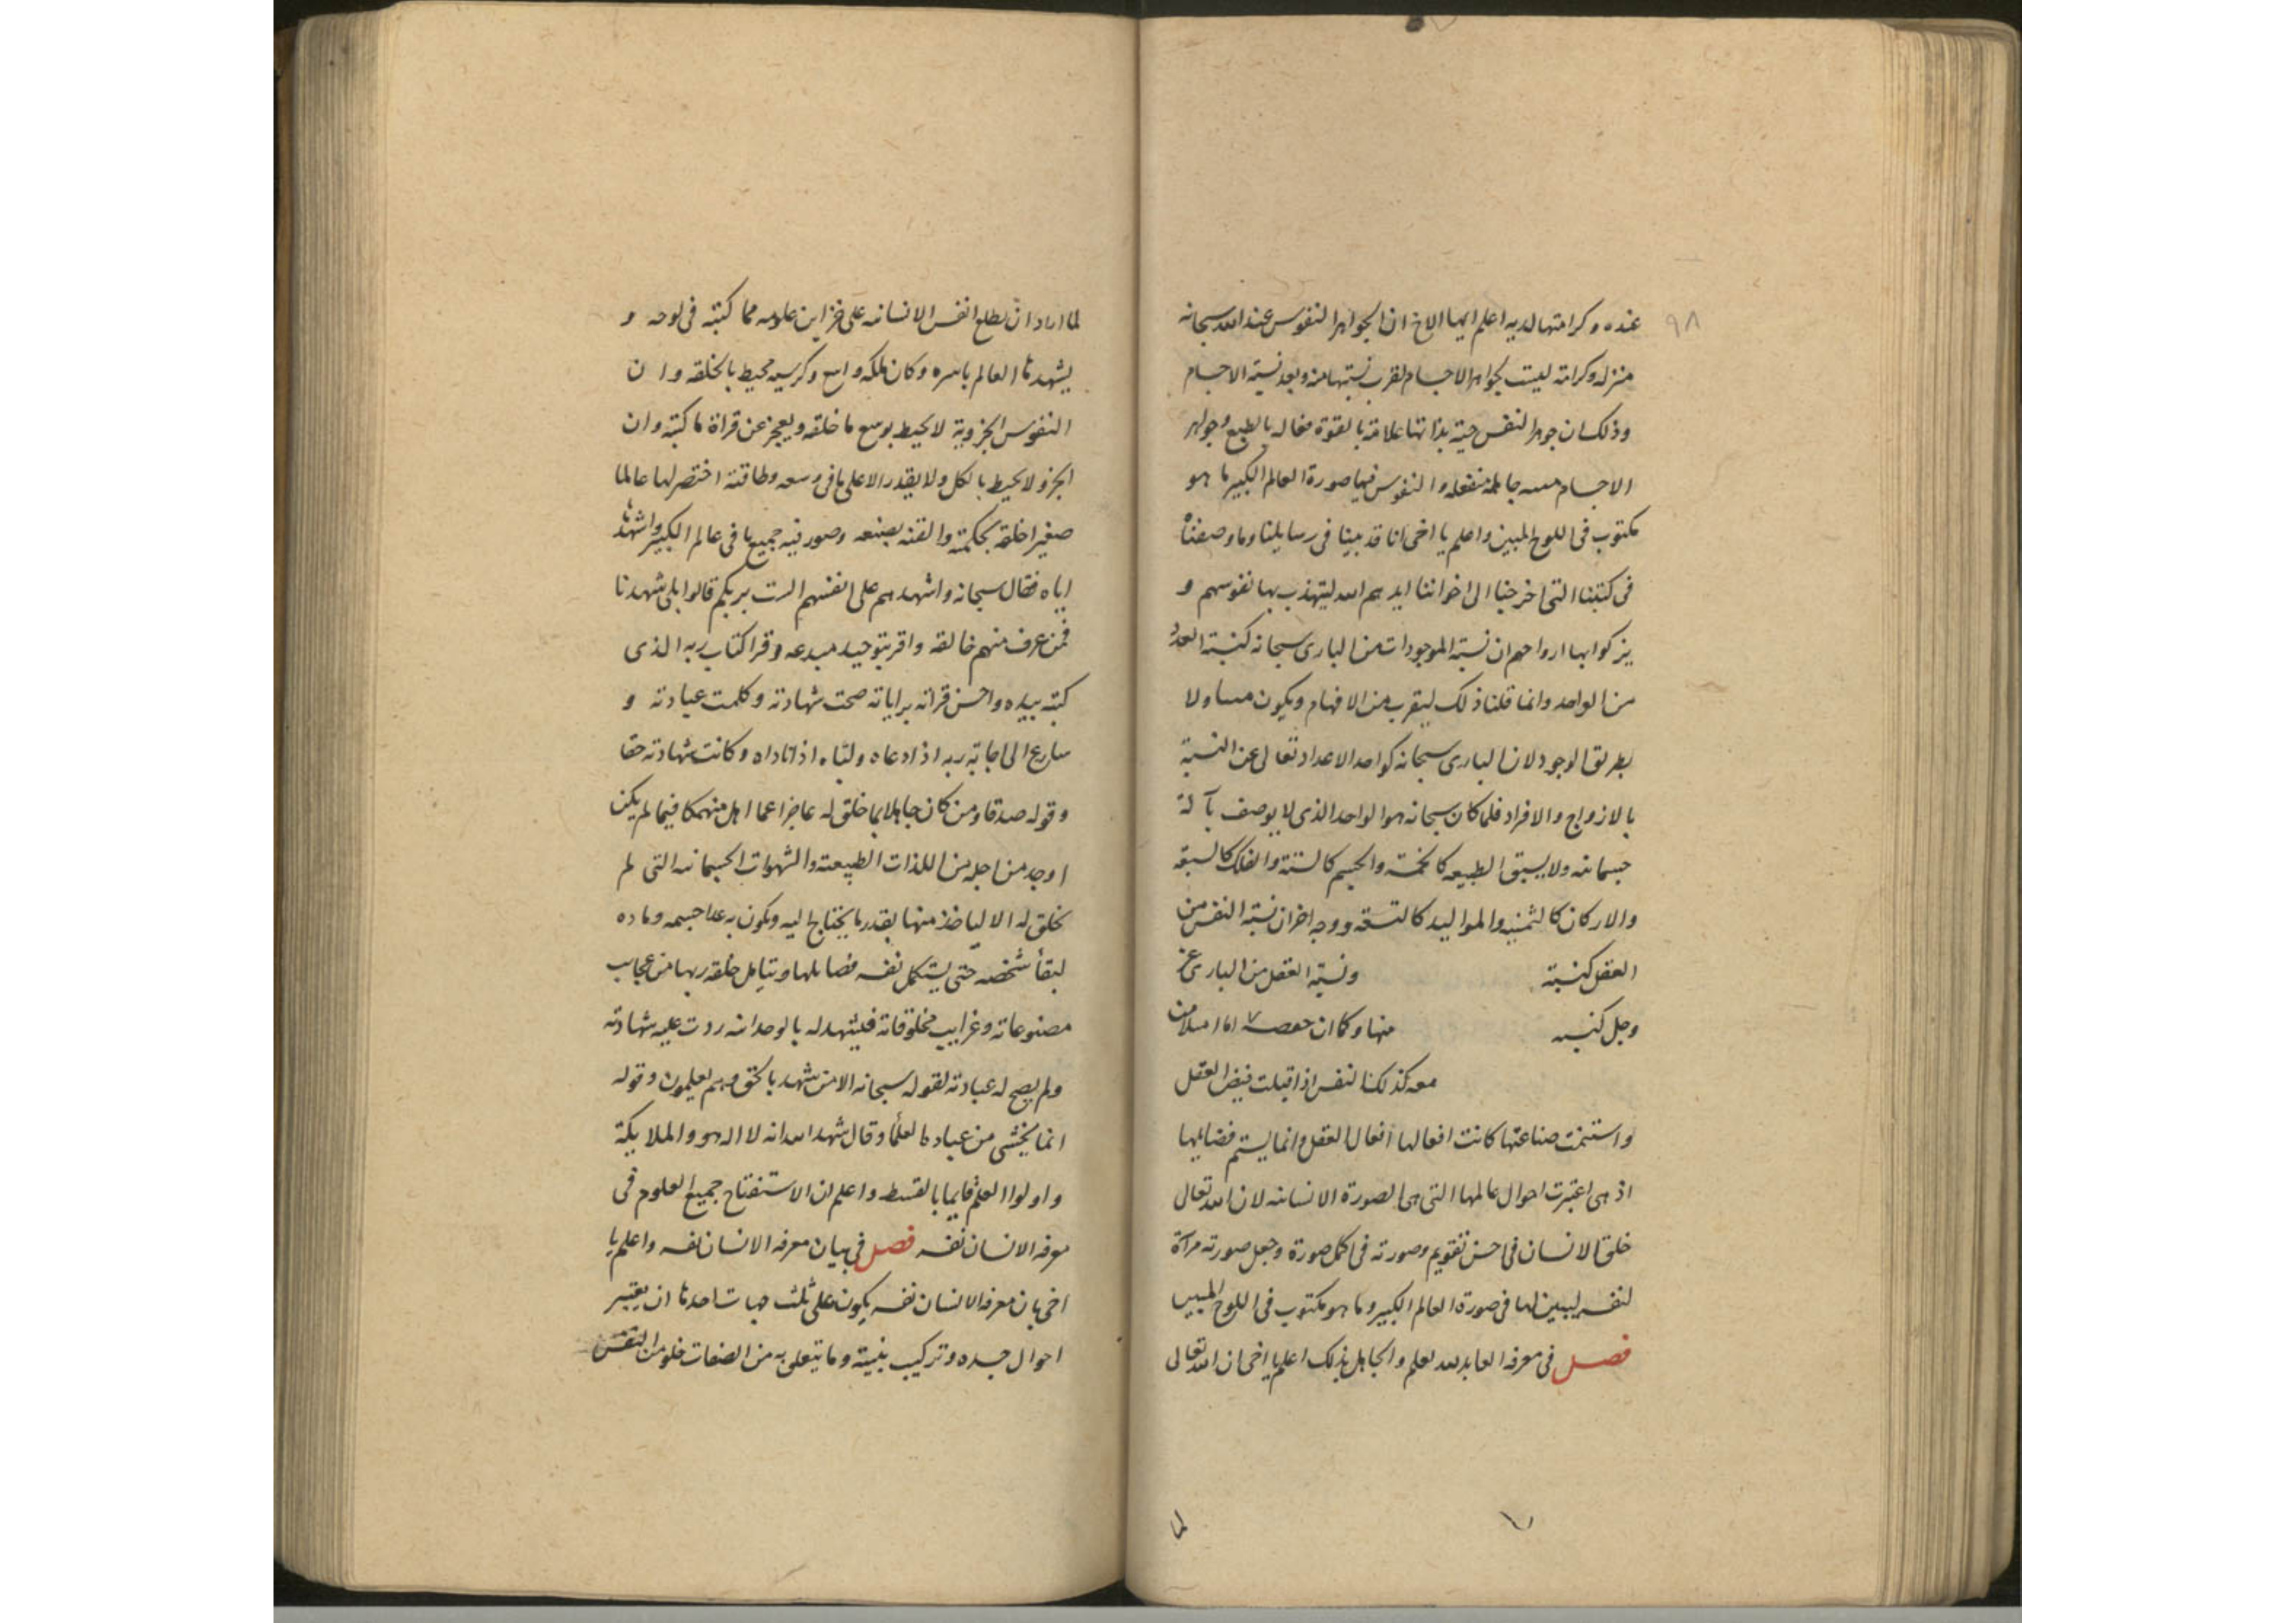 ٩٨
عنده وكرامتها لديه اعلم ايها الاخ ان الجواهر النفوس عند الله سبحانه
منزله وكرامة ليست لجواهر الاجسام لقرب نسبتها منه وبعد نسبة الاجسام
وذلك ان جوهر النفس حية بذاتها علامة بالقوة فعاله بالطبع وجواهر
الاجسام ميته جاهلة منفعله والنفوس فيها صورة العالم الكبير ما هو
مكتوب في اللوح المبين واعلم يا اخي انا قد بينا في رسايلنا وما وصفناه
في كتبنا التي اخرجنا الى اخواننا ايدهم الله ليتهذب بها نفوسهم و
يزكوا بها ارواحهم ان نسبة الموجودات من الباري سبحانه كنسبة العدد
من الواحد وانما قلنا ذلك ليقرب من الافهام ويكون ولا
بطريق الوجود لان الباري سبحانه كواحد الاعداد تعالى عن النسبة
بالازواج والافراد فلما كان سبحانه هو الواحد الذي لا يوصف بآلة
جسمانيه ولا يسبق الطبيعه كالخمسة والجسم كالستة والفلك كالسبعة
والاركان كالثمنيه والمواليد كالتسعه ووجه اخر ان نسبة النفس من
العقل كنسبة ونسبة العقل من الباري عز
وجل كنسبه منها وكان
معه كذلك النفس اذا قبلت فيض العقل
واستتمت صناعتها كانت افعالها افعال العقل وانما يستتم فضايلها
اذ هي اعتبرت احوال عالمها التي هي الصورة الانسانيه لان الله تعالى
خلق الانسان في احسن تقويم وصورته في اكمل صورة وجعل صورته مرآة
لنفسه ليبين لها في صورة العالم الكبير وما هو مكتوب في اللوح المبين
فصل في معرفه العابد لله بعلم والجاهل بذلك اعلم يا اخي ان الله تعالى
لما
لما اراد ان يطلع انفس الانسانيه على خزاين علومه مما كتبه في لوحه و
يشهدها العالم باسره وكان ملكه واسع وكرسيه محيط بالخلقه وان
النفوس الجزوية لا يحيط بوسع ما خلقه ويعجز عن قراة ما كتبه وان
الجزو لا يحيط بالكل ولا يقدر الا على ما في وسعه وطاقته اختصر لها عالما
صغيرا خلقه بحكمته واتقنه بصنعه وصور فيه جميع ما في عالم الكبير واشهدها
اياه فقال سبحانه واشهدهم على انفسهم الست بربكم قالوا بلى شهدنا
فمن عرف منهم خالقه واقر بتوحيد مبدعه وقرا كتاب ربه الذي
كتبه بيده واحسن قراته براياته صحت شهادته وكلمت عبادته و
سارع الى اجابة ربه اذا دعاه ولباه اذا ناداه وكانت شهادته حقا
وقوله صدقا ومن كان جاهلا بما خلق له عاجزا عما اهل منهمكا فيما لم يكن
اوجد من اجله من اللذات الطبيعته والشهوات الجسمانيه التي لم
يخلق له الا لياخذ منها بقدر ما يحتاج اليه ويكون به غدا جسمه وماده
لبقأ شخصه حتى يستكمل نفسه فضايلها ويتامل خلقه ربها من عجايب
مصنوعاته وغرايب مخلوقاته فليشهد له بالوحدانيه ردت عليه شهادته
ولم يصح له عبادته لقوله سبحانه الا من شهد بالحق وهم يعلمون وقوله
انما يخشى من عباده العلمأ وقال شهد الله انه لا اله الا هو والملايكة
واولوا العلم قايما بالقسط واعلم ان الاستفتاح جميع العلوم في
معرفه الانسان نفسه فصل في بيان معرفه الانسان نفسه واعلم يا
اخي بان معرفه الانسان نفسه يكون على ثلث جهات احدها ان يعتبر
احوال جسده وتركيب بنيته وما يتعلق به من الصفات خلوا من النفس